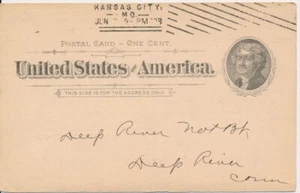 KANSAS CITY,
MO.
JUN 5-PM '98
POSTAL CARD – ONE CENT.
United States of America.
THIS SIDE IS FOR THE ADDRESS ONLY.
Deep River Nat Bk
Deep River
Conn